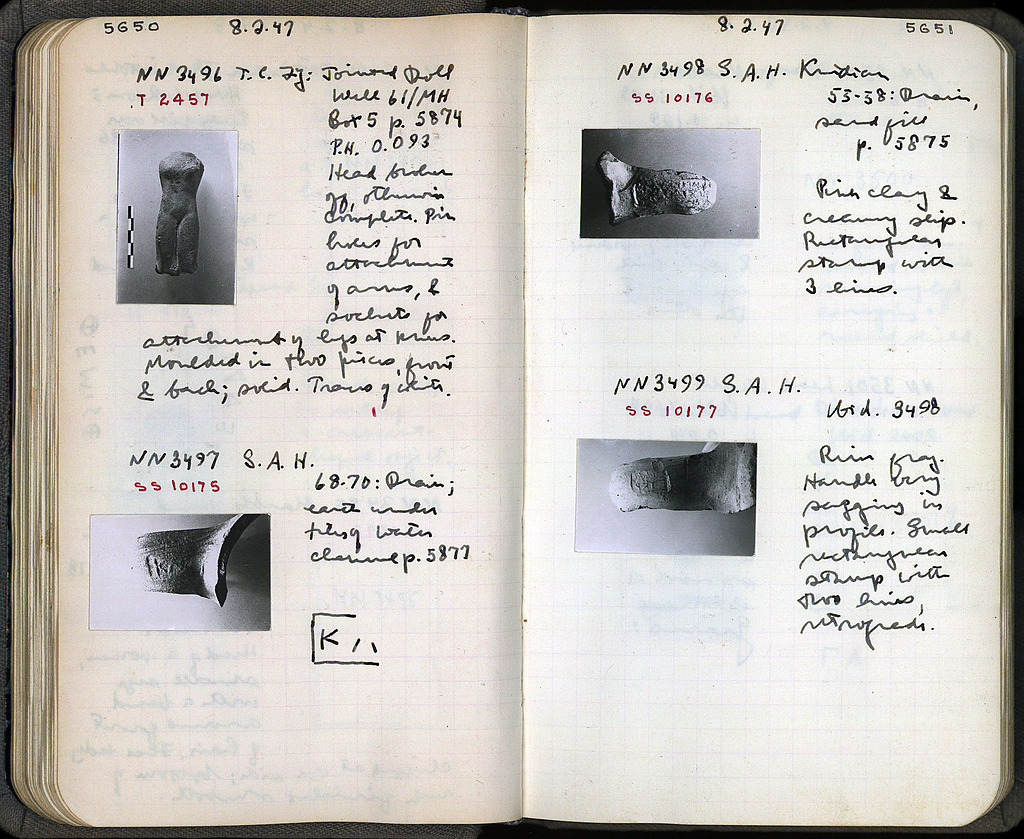 5650
8.2.47
NN 3496 T.C. Fig: Jointed Doll
T 2457
Well 61/MH
Box 5 p. 5874
P.H. 0.093
Head broken
off, otherwise
complete. Pin
holes for
attachment
of arms, &
sockets for
attachment of legs at knees.
Moulded in two pieces, front
& back; solid. Traces of white.
NN 3497 S.A.H.
SS 10175
68-70: Drain;
earth under
tiles of water
channel p. 5877
K
8.2.47
5651
NN 3498 S.A.H. Knidian
SS 10176
53-58: Drain,
sand fill
p. 5875
Pink clay &
creamy slip.
Rectangular
stamp with
3 lines.
NN 3499 S.A.H.
SS 10177
Ibid. 3498
Rim frag.
Handle very
sagging in
profile. Small
rectangular
stamp with
two lines,
retrograde.